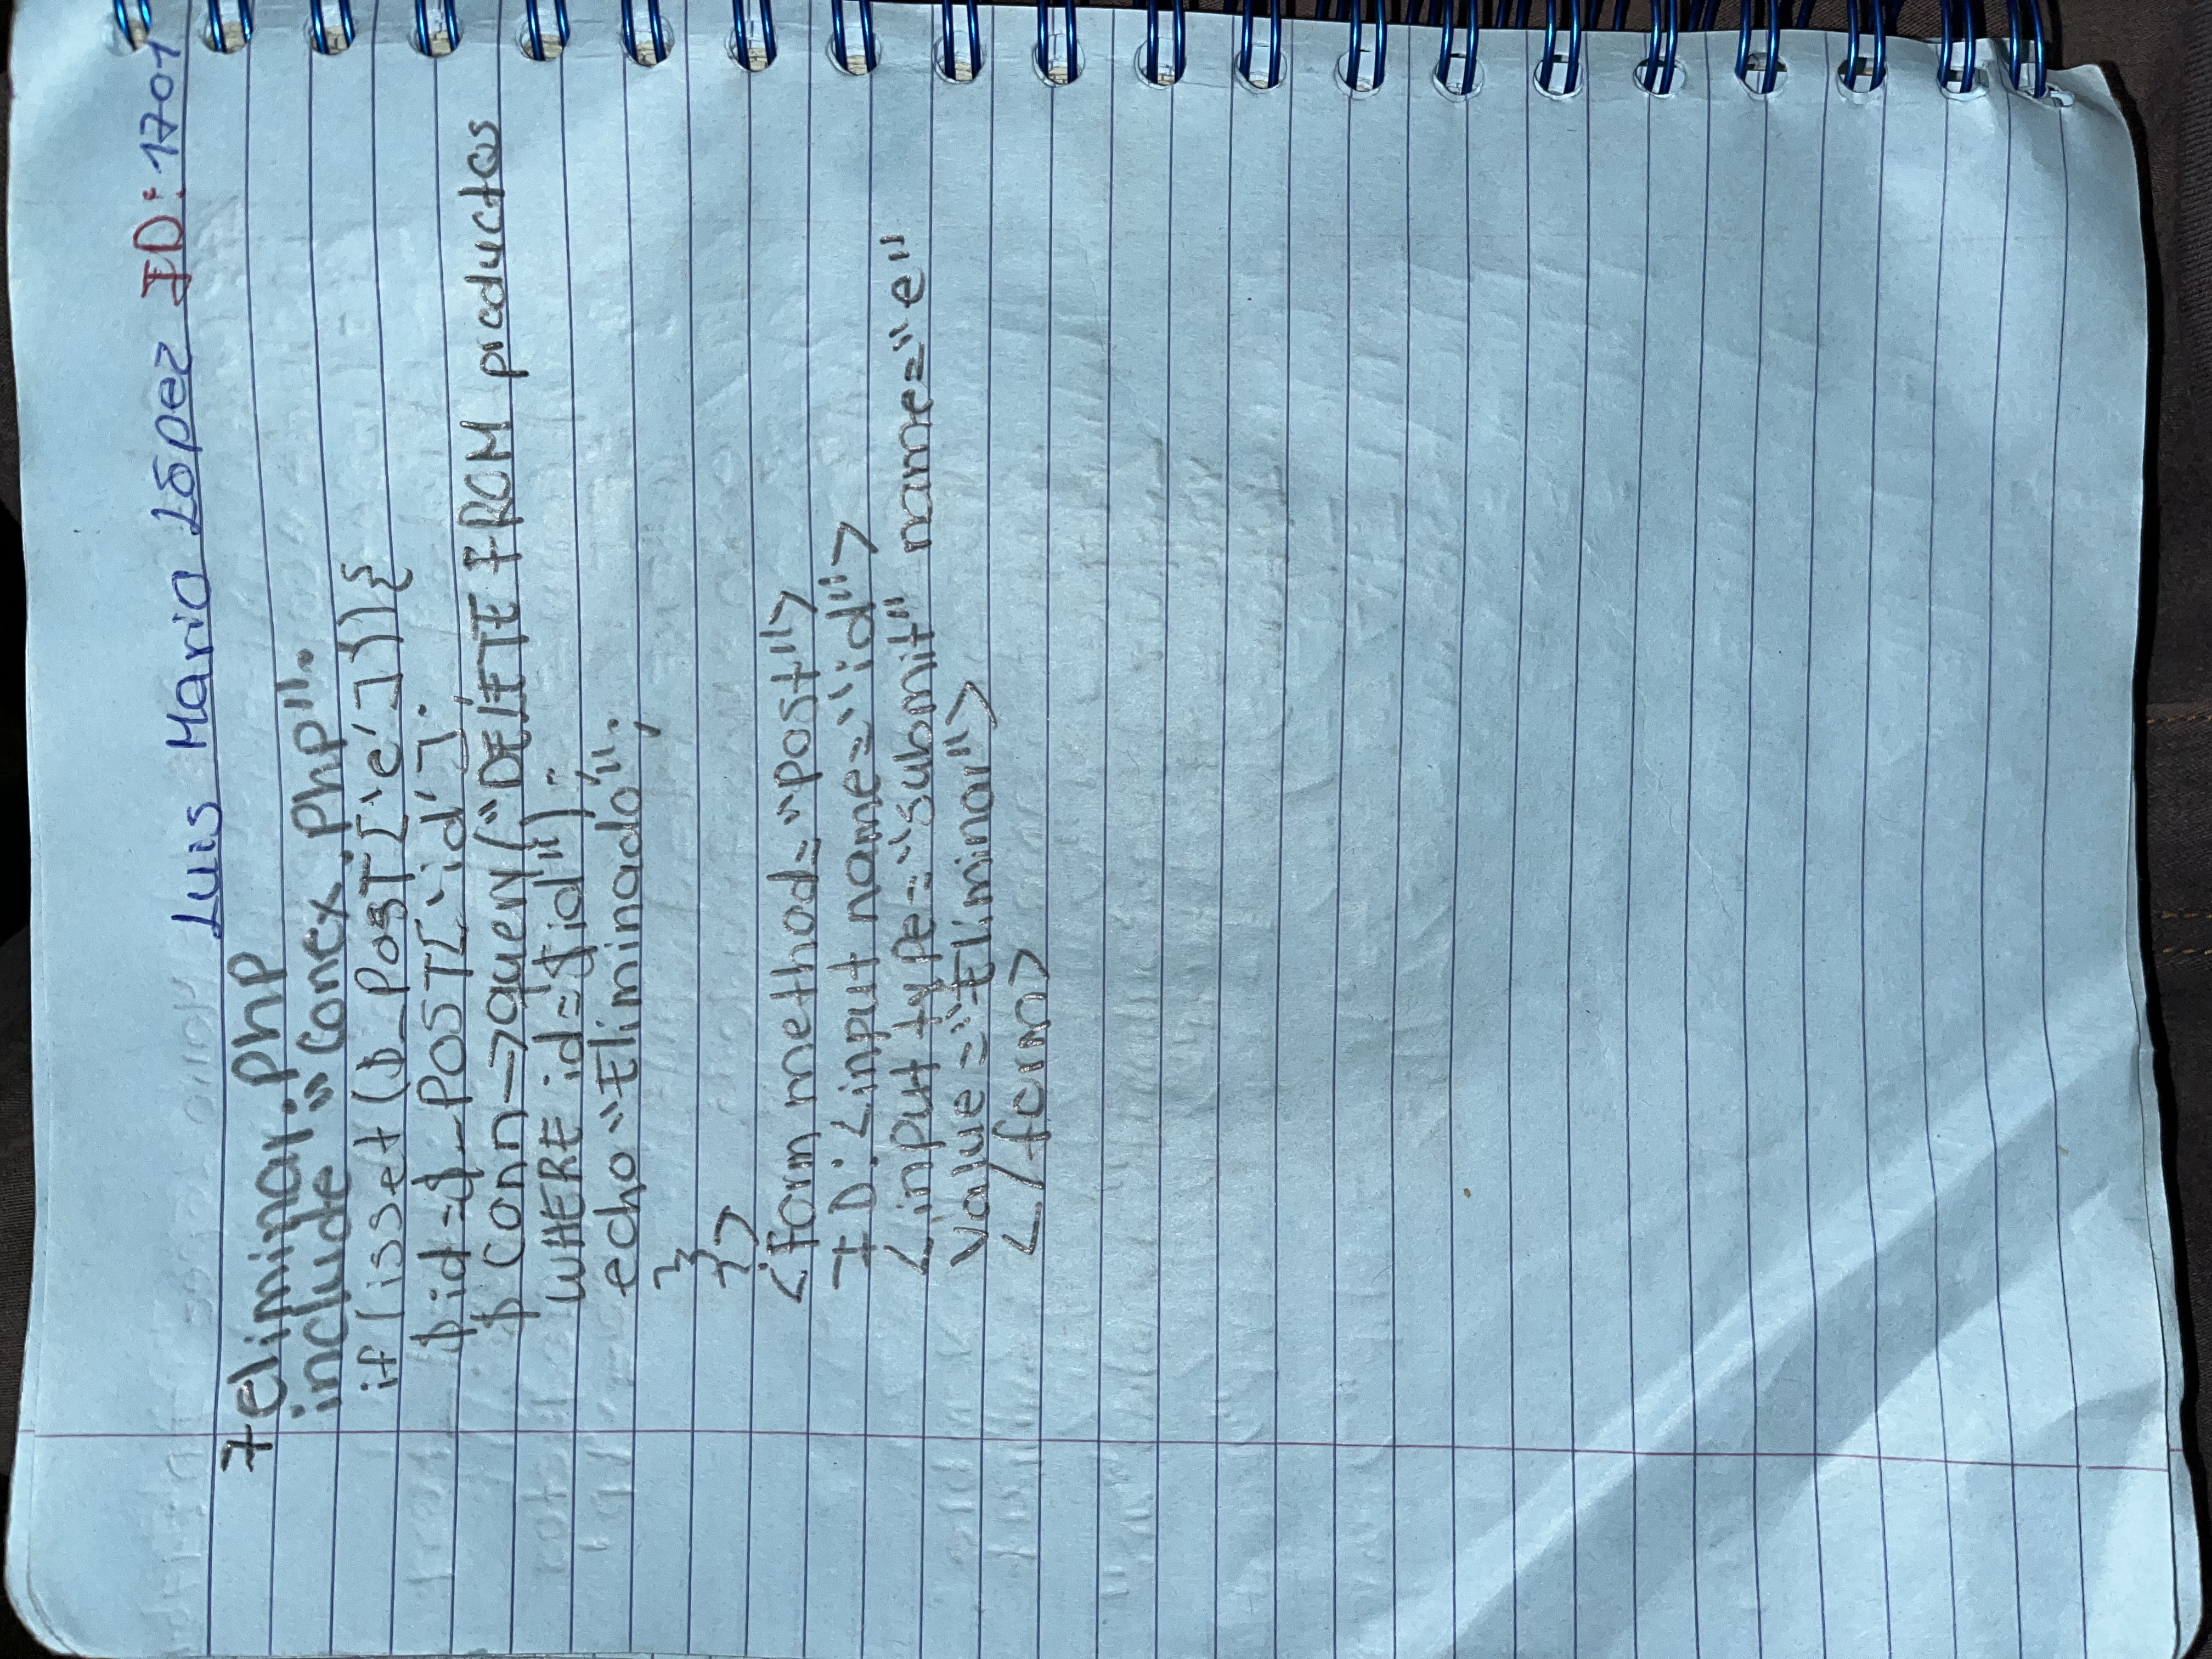 Luis Mario López ID: 1701
7 eliminar.php
include "conex.php".
if (isset($_POST['e'])){
$id=$_POST['id'].
$conn->query("DELETE FROM productos
WHERE id=$id").
echo "Eliminado";
}
?>
<form method="post">
ID: <input name="id">
<input type="submit" name="e"
value="Eliminar">
</form>